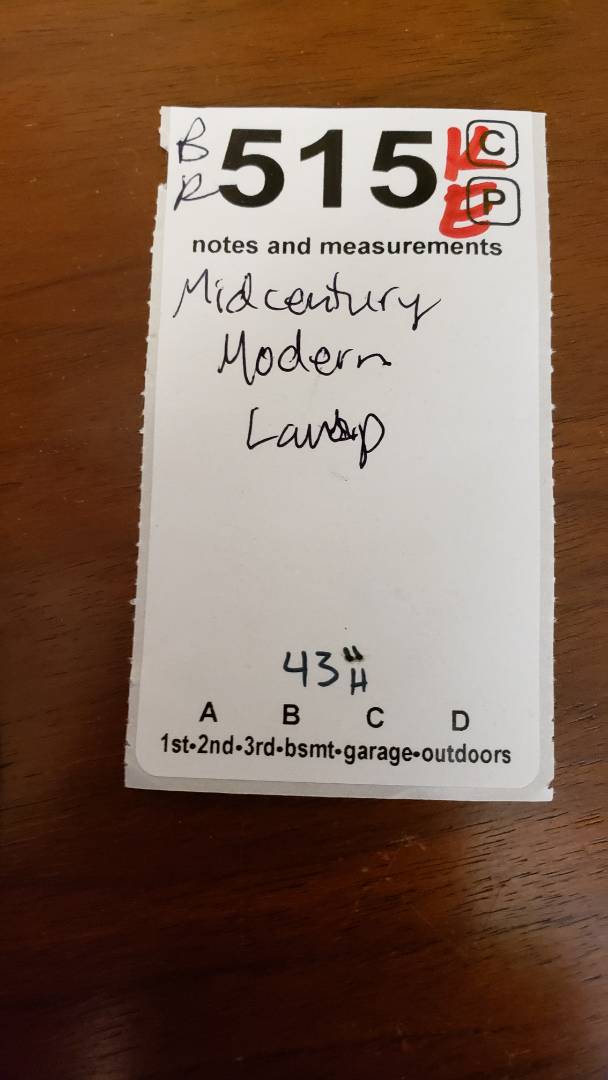 B 515 K C
R E P
notes and measurements
Midcentury
Modern
Lamp
43" H
A B C D
1st•2nd•3rd•bsmt•garage•outdoors